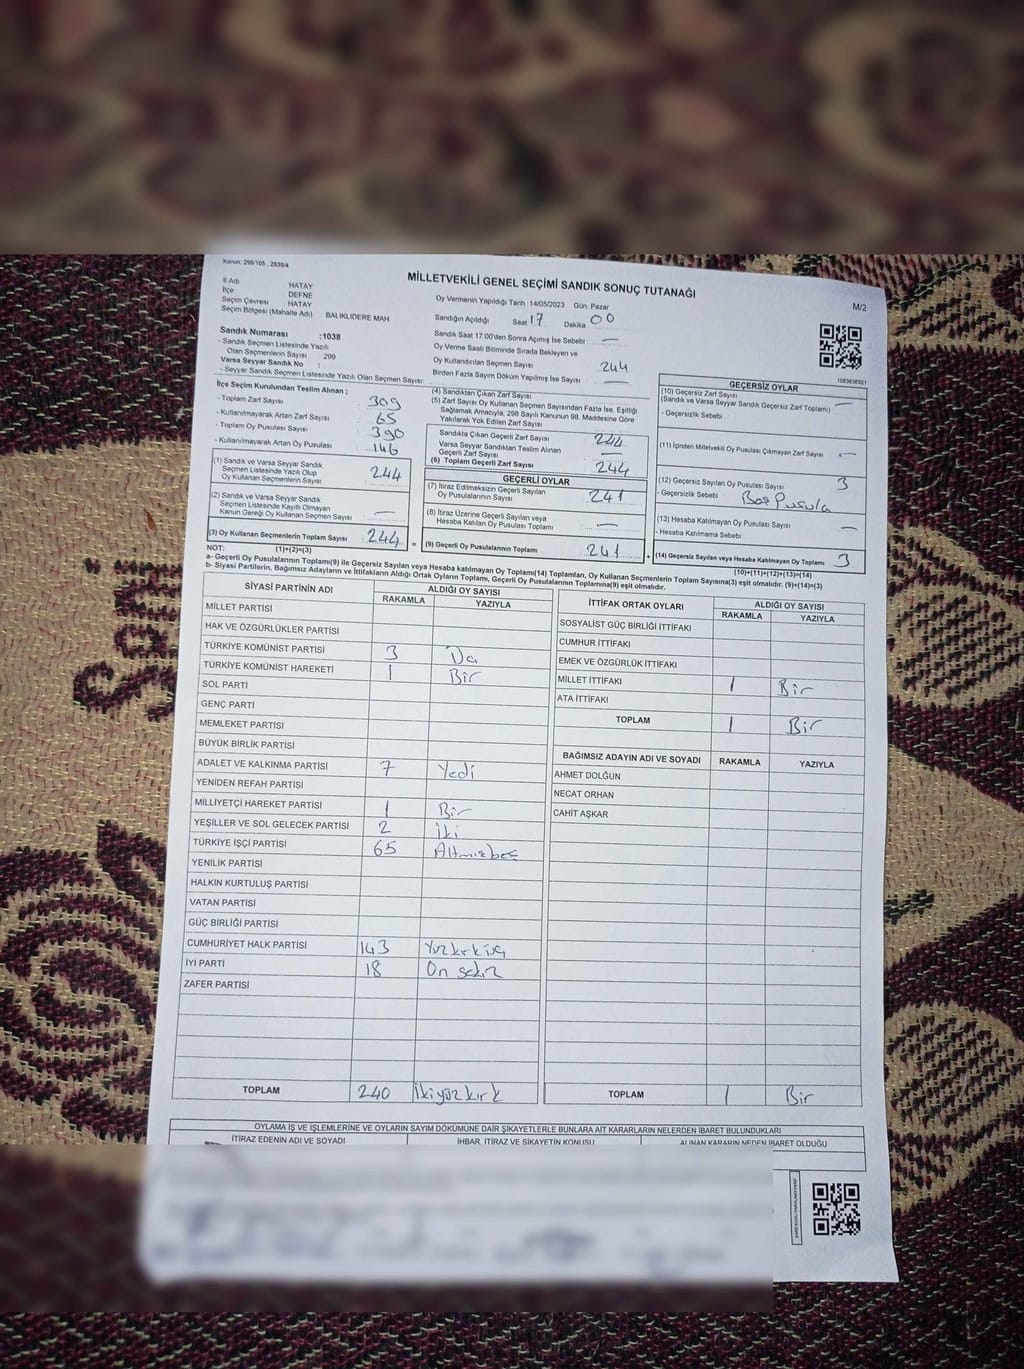 Kanun: 298/105 , 2839/4
MİLLETVEKİLİ GENEL SEÇİMİ SANDIK SONUÇ TUTANAĞI
M/2
İl Adı HATAY
İlçe DEFNE
Seçim Çevresi HATAY
Seçim Bölgesi (Mahalle Adı) : BALIKLIDERE MAH
Oy Vermenin Yapıldığı Tarih :14/05/2023 Gün: Pazar
Sandığın Açıldığı Saat 17 Dakika 00
Sandık Saat 17:00'den Sonra Açımış İse Sebebi : —
Oy Verme Saati Bitiminde Sırada Bekleyen ve
Oy Kullandırılan Seçmen Sayısı 244
Birden Fazla Sayım Döküm Yapılmış İse Sayısı —
Sandık Numarası :1038
- Sandık Seçmen Listesinde Yazılı
Olan Seçmenlerin Sayısı 299
Varsa Seyyar Sandık No :
- Seyyar Sandık Seçmen Listesinde Yazılı Olan Seçmen Sayısı:
1083836921
İlçe Seçim Kurulundan Teslim Alınan :
- Toplam Zarf Sayısı : 309
- Kullanılmayarak Artan Zarf Sayısı : 65
- Toplam Oy Pusulası Sayısı : 390
- Kullanılmayarak Artan Oy Pusulası : 146
(1) Sandık ve Varsa Seyyar Sandık
Seçmen Listesinde Yazılı Olup
Oy Kullanan Seçmenlerin Sayısı 244
(2) Sandık ve Varsa Seyyar Sandık
Seçmen Listesinde Kayıtlı Olmayan
Kanun Gereği Oy Kullanan Seçmen Sayısı —
(3) Oy Kullanan Seçmenlerin Toplam Sayısı 244 =
(4) Sandıktan Çıkan Zarf Sayısı
(5) Zarf Sayısı Oy Kullanan Seçmen Sayısından Fazla İse, Eşitliği
Sağlamak Amacıyla; 298 Sayılı Kanunun 98. Maddesine Göre
Yakılarak Yok Edilen Zarf Sayısı
Sandıkta Çıkan Geçerli Zarf Sayısı 244
Varsa Seyyar Sandıktan Teslim Alınan
Geçerli Zarf Sayısı —
(6) Toplam Geçerli Zarf Sayısı 244
GEÇERLİ OYLAR
(7) İtiraz Edilmeksizin Geçerli Sayılan
Oy Pusulalarının Sayısı 241
(8) İtiraz Üzerine Geçerli Sayılan veya
Hesaba Katılan Oy Pusulası Toplamı —
(9) Geçerli Oy Pusulalarının Toplamı 241 +
GEÇERSİZ OYLAR
(10) Geçersiz Zarf Sayısı
(Sandık ve Varsa Seyyar Sandık Geçersiz Zarf Toplamı) —
- Geçersizlik Sebebi :
(11) İçinden Milletvekili Oy Pusulası Çıkmayan Zarf Sayısı —
(12) Geçersiz Sayılan Oy Pusulası Sayısı 3
- Geçersizlik Sebebi : Boş Pusula
(13) Hesaba Katılmayan Oy Pusulası Sayısı —
- Hesaba Katılmama Sebebi
(14) Geçersiz Sayılan veya Hesaba Katılmayan Oy Toplamı 3
(10)+(11)+(12)+(13)=(14)
NOT: (1)+(2)=(3)
a- Geçerli Oy Pusulalarının Toplamı(9) ile Geçersiz Sayılan veya Hesaba katılmayan Oy Toplam(14) Toplamları, Oy Kullanan Seçmenlerin Toplam Sayısına(3) eşit olmalıdır. (9)+(14)=(3)
b- Siyasi Partilerin, Bağımsız Adayların ve İttifakların Aldığı Ortak Oyların Toplamı, Geçerli Oy Pusulalarının Toplamına(9) eşit olmalıdır.
SİYASİ PARTİNİN ADI ALDIĞI OY SAYISI
RAKAMLA YAZIYLA
MİLLET PARTİSİ
HAK VE ÖZGÜRLÜKLER PARTİSİ
TÜRKİYE KOMÜNİST PARTİSİ 3
TÜRKİYE KOMÜNİST HAREKETİ 1 Bir
SOL PARTİ
GENÇ PARTİ
MEMLEKET PARTİSİ
BÜYÜK BİRLİK PARTİSİ
ADALET VE KALKINMA PARTİSİ 7 Yedi
YENİDEN REFAH PARTİSİ
MİLLİYETÇİ HAREKET PARTİSİ 1 Bir
YEŞİLLER VE SOL GELECEK PARTİSİ 2 İki
TÜRKİYE İŞÇİ PARTİSİ 65 Altmışbeş
YENİLİK PARTİSİ
HALKIN KURTULUŞ PARTİSİ
VATAN PARTİSİ
GÜÇ BİRLİĞİ PARTİSİ
CUMHURİYET HALK PARTİSİ 143 Yüzkırküç
İYİ PARTİ 18 On sekiz
ZAFER PARTİSİ
TOPLAM 240 İkiyüz kırk
İTTİFAK ORTAK OYLARI ALDIĞI OY SAYISI
RAKAMLA YAZIYLA
SOSYALİST GÜÇ BİRLİĞİ İTTİFAKI
CUMHUR İTTİFAKI
EMEK VE ÖZGÜRLÜK İTTİFAKI
MİLLET İTTİFAKI 1 Bir
ATA İTTİFAKI
TOPLAM 1 Bir
BAĞIMSIZ ADAYIN ADI VE SOYADI RAKAMLA YAZIYLA
AHMET DOLĞUN
NECAT ORHAN
CAHİT AŞKAR
TOPLAM 1 Bir
OYLAMA İŞ VE İŞLEMLERİNE VE OYLARIN SAYIM DÖKÜMÜNE DAİR ŞİKAYETLERLE BUNLARA AİT KARARLARIN NELERDEN İBARET BULUNDUKLARI
İTİRAZ EDENİN ADI VE SOYADI İHBAR, İTİRAZ VE ŞİKAYETİN KONUSU ALINAN KARARIN NEDEN İBARET OLDUĞU